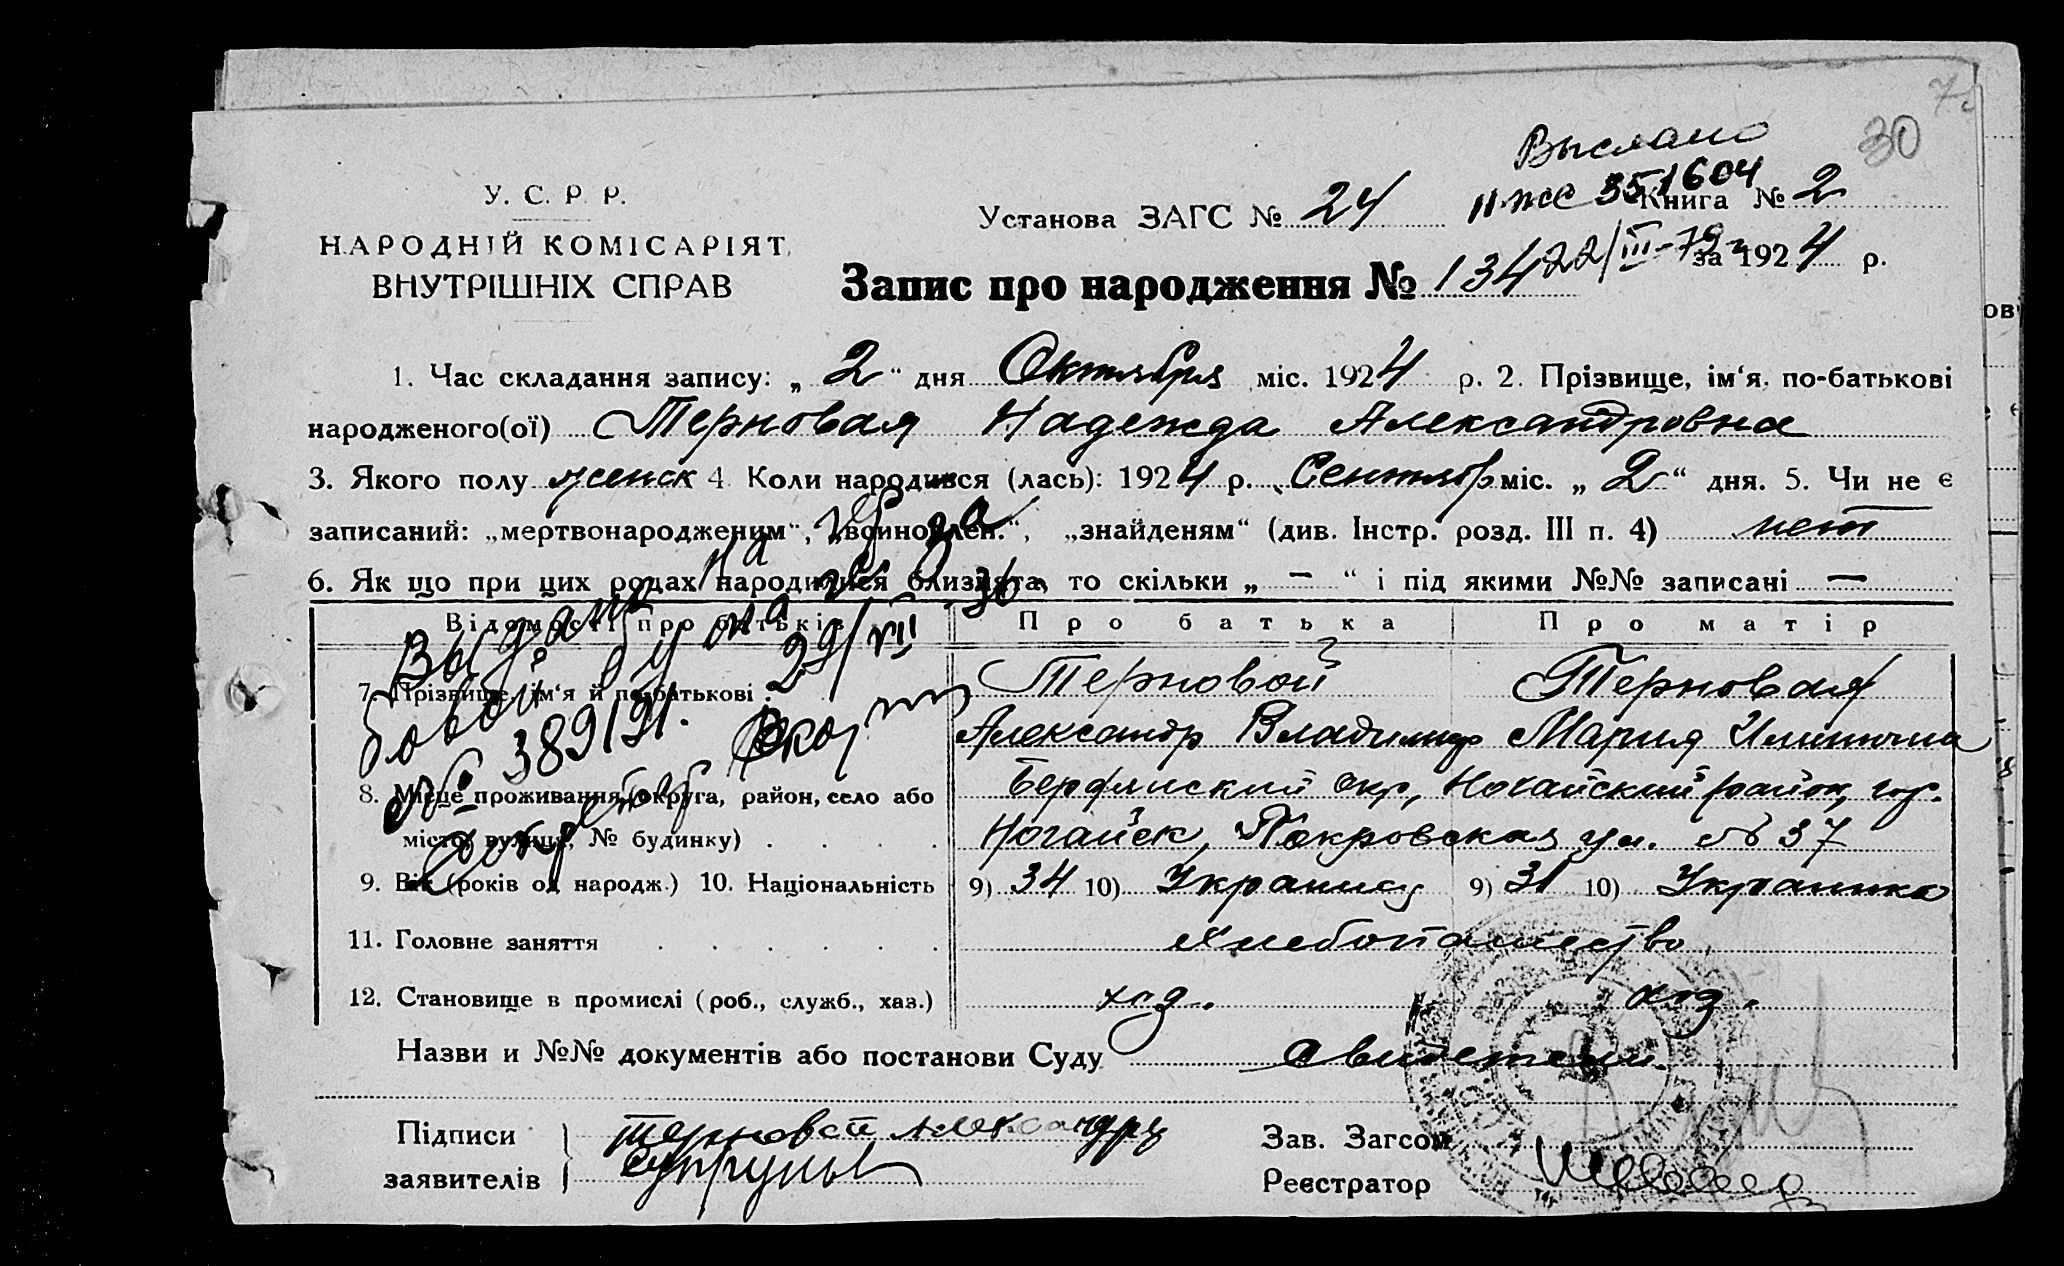 7
30
Выслано
У. С. Р. Р.
Установа ЗАГС № 24
н-жс 351604
Книга № 2
НАРОДНІЙ КОМІСАРІЯТ
ВНУТРІШНІХ СПРАВ
Запис про народження № 134
22/III-79
за 1924 р.
1. Час складання запису: „ 2 “ дня Октября міс. 1924 р. 2. Прізвище, ім‘я, по-батькові
народженого(ої) Терновая Надежда Александровна
3. Якого полу женск 4. Коли народився (лась): 1924 р. Сентябр міс. „ 2 “ дня. 5. Чи не є
записаний: „мертвонародженим“, „двоиновлен.“, „знайденям“ (див. Інстр. розд. III п. 4) нет
6. Як що при цих родах народилися близнята, то скільки „ — “ і під якими №№ записані —
Відомості про батьків
Про батька
Про матір
Выдана
29/VII
7. Прізвище, ім‘я й по-батькові
Терновой
Терновая
Александр Владимир
Мария Ильинична
№ 389191.
8. Місце проживання (округа, район, село або
місто, вулиця, № будинку)
Бердянский окр, Ногайский район, гор.
Ногайск, Покровская ул. № 37
9. Вік (років од народж.) 10. Національність
9) 34 10) Украинец
9) 31 10) Украинка
11. Головне заняття
Хлебопашество
12. Становище в промислі (роб., служб., хаз.)
хоз.
хоз.
Назви и №№ документів або постанови Суду
Свидетели
Підписи
заявителів
Терновой Александр
Зав. Загсом
Реєстратор